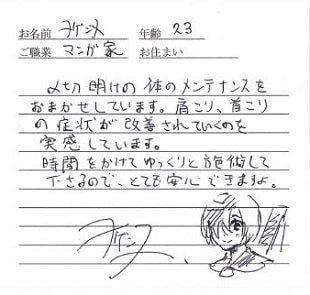 お名前 ヲケンス 年齢 23
ご職業 マンガ家 お住まい
〆切明けの体のメンテナンスを
おまかせしています。肩こり、首こり
の症状が改善されていくのを
実感しています。
時間をかけてゆっくりと施術して
下さるので、とても安心できますよ。
ヲケンス